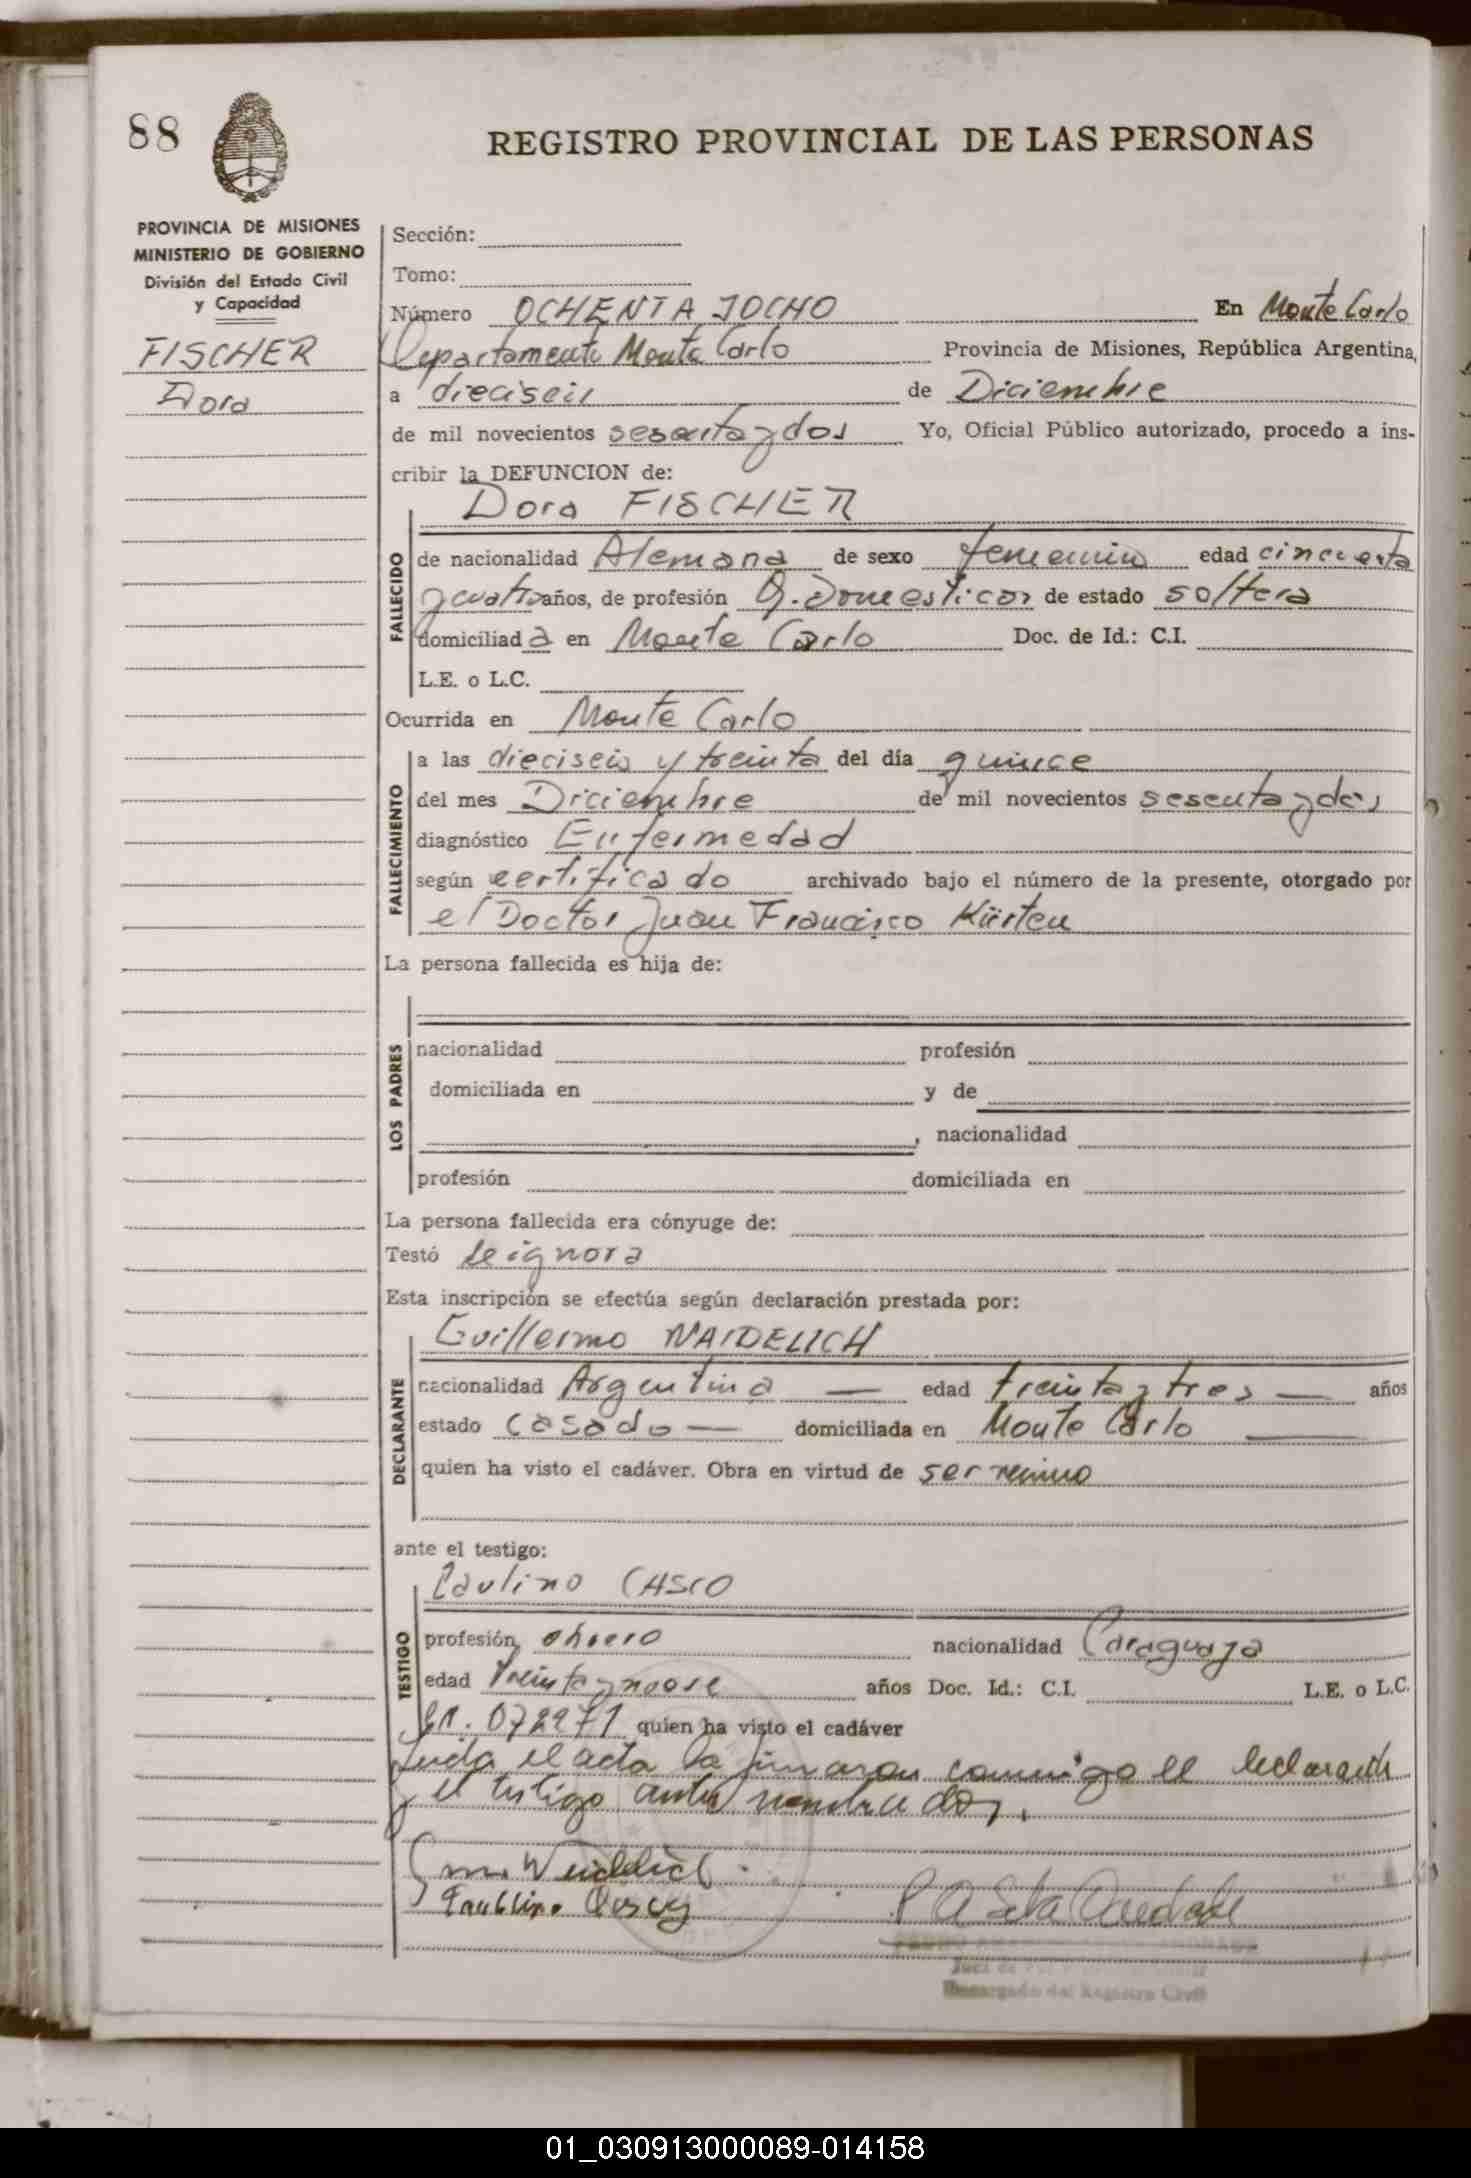 88
REGISTRO PROVINCIAL DE LAS PERSONAS
PROVINCIA DE MISIONES
MINISTERIO DE GOBIERNO
División del Estado Civil
y Capacidad
FISCHER
Dora
Sección:
Tomo:
Número OCHENTA YOCHO En Monte Carlo
Departamento Monte Carlo Provincia de Misiones, República Argentina,
a dieciseis de Diciembre
de mil novecientos sesenta y dos Yo, Oficial Público autorizado, procedo a ins-
cribir la DEFUNCION de:
Dora FISCHER
FALLECIDO
de nacionalidad Alemana de sexo femenino edad cincuenta
y cuatro años, de profesión Q. Domesticos de estado soltera
domiciliad a en Monte Carlo Doc. de Id.: C.I.
L.E. o L.C.
Ocurrida en Monte Carlo
FALLECIMIENTO
a las dieciseis y treinta del día quince
del mes Diciembre de mil novecientos sesenta y dos
diagnóstico Enfermedad
según certificado archivado bajo el número de la presente, otorgado por
el Doctor Juan Francisco Kürten
La persona fallecida es hija de:
LOS PADRES
nacionalidad profesión
domiciliada en y de
, nacionalidad
profesión domiciliada en
La persona fallecida era cónyuge de:
Testó Se ignora
Esta inscripción se efectúa según declaración prestada por:
Guillermo WAIDELICH
DECLARANTE
nacionalidad Argentina — edad treinta y tres — años
estado casado — domiciliada en Monte Carlo —
quien ha visto el cadáver. Obra en virtud de ser vecino
ante el testigo:
Paulino CASCO
TESTIGO
profesión obrero nacionalidad Paraguaya
edad treinta y nueve años Doc. Id.: C.I. L.E. o L.C.
072271 quien ha visto el cadáver
Leida el acta la firmaron conmigo el declarante
y el testigo antes nombrados.
Encargado del Registro Civil
01_030913000089-014158